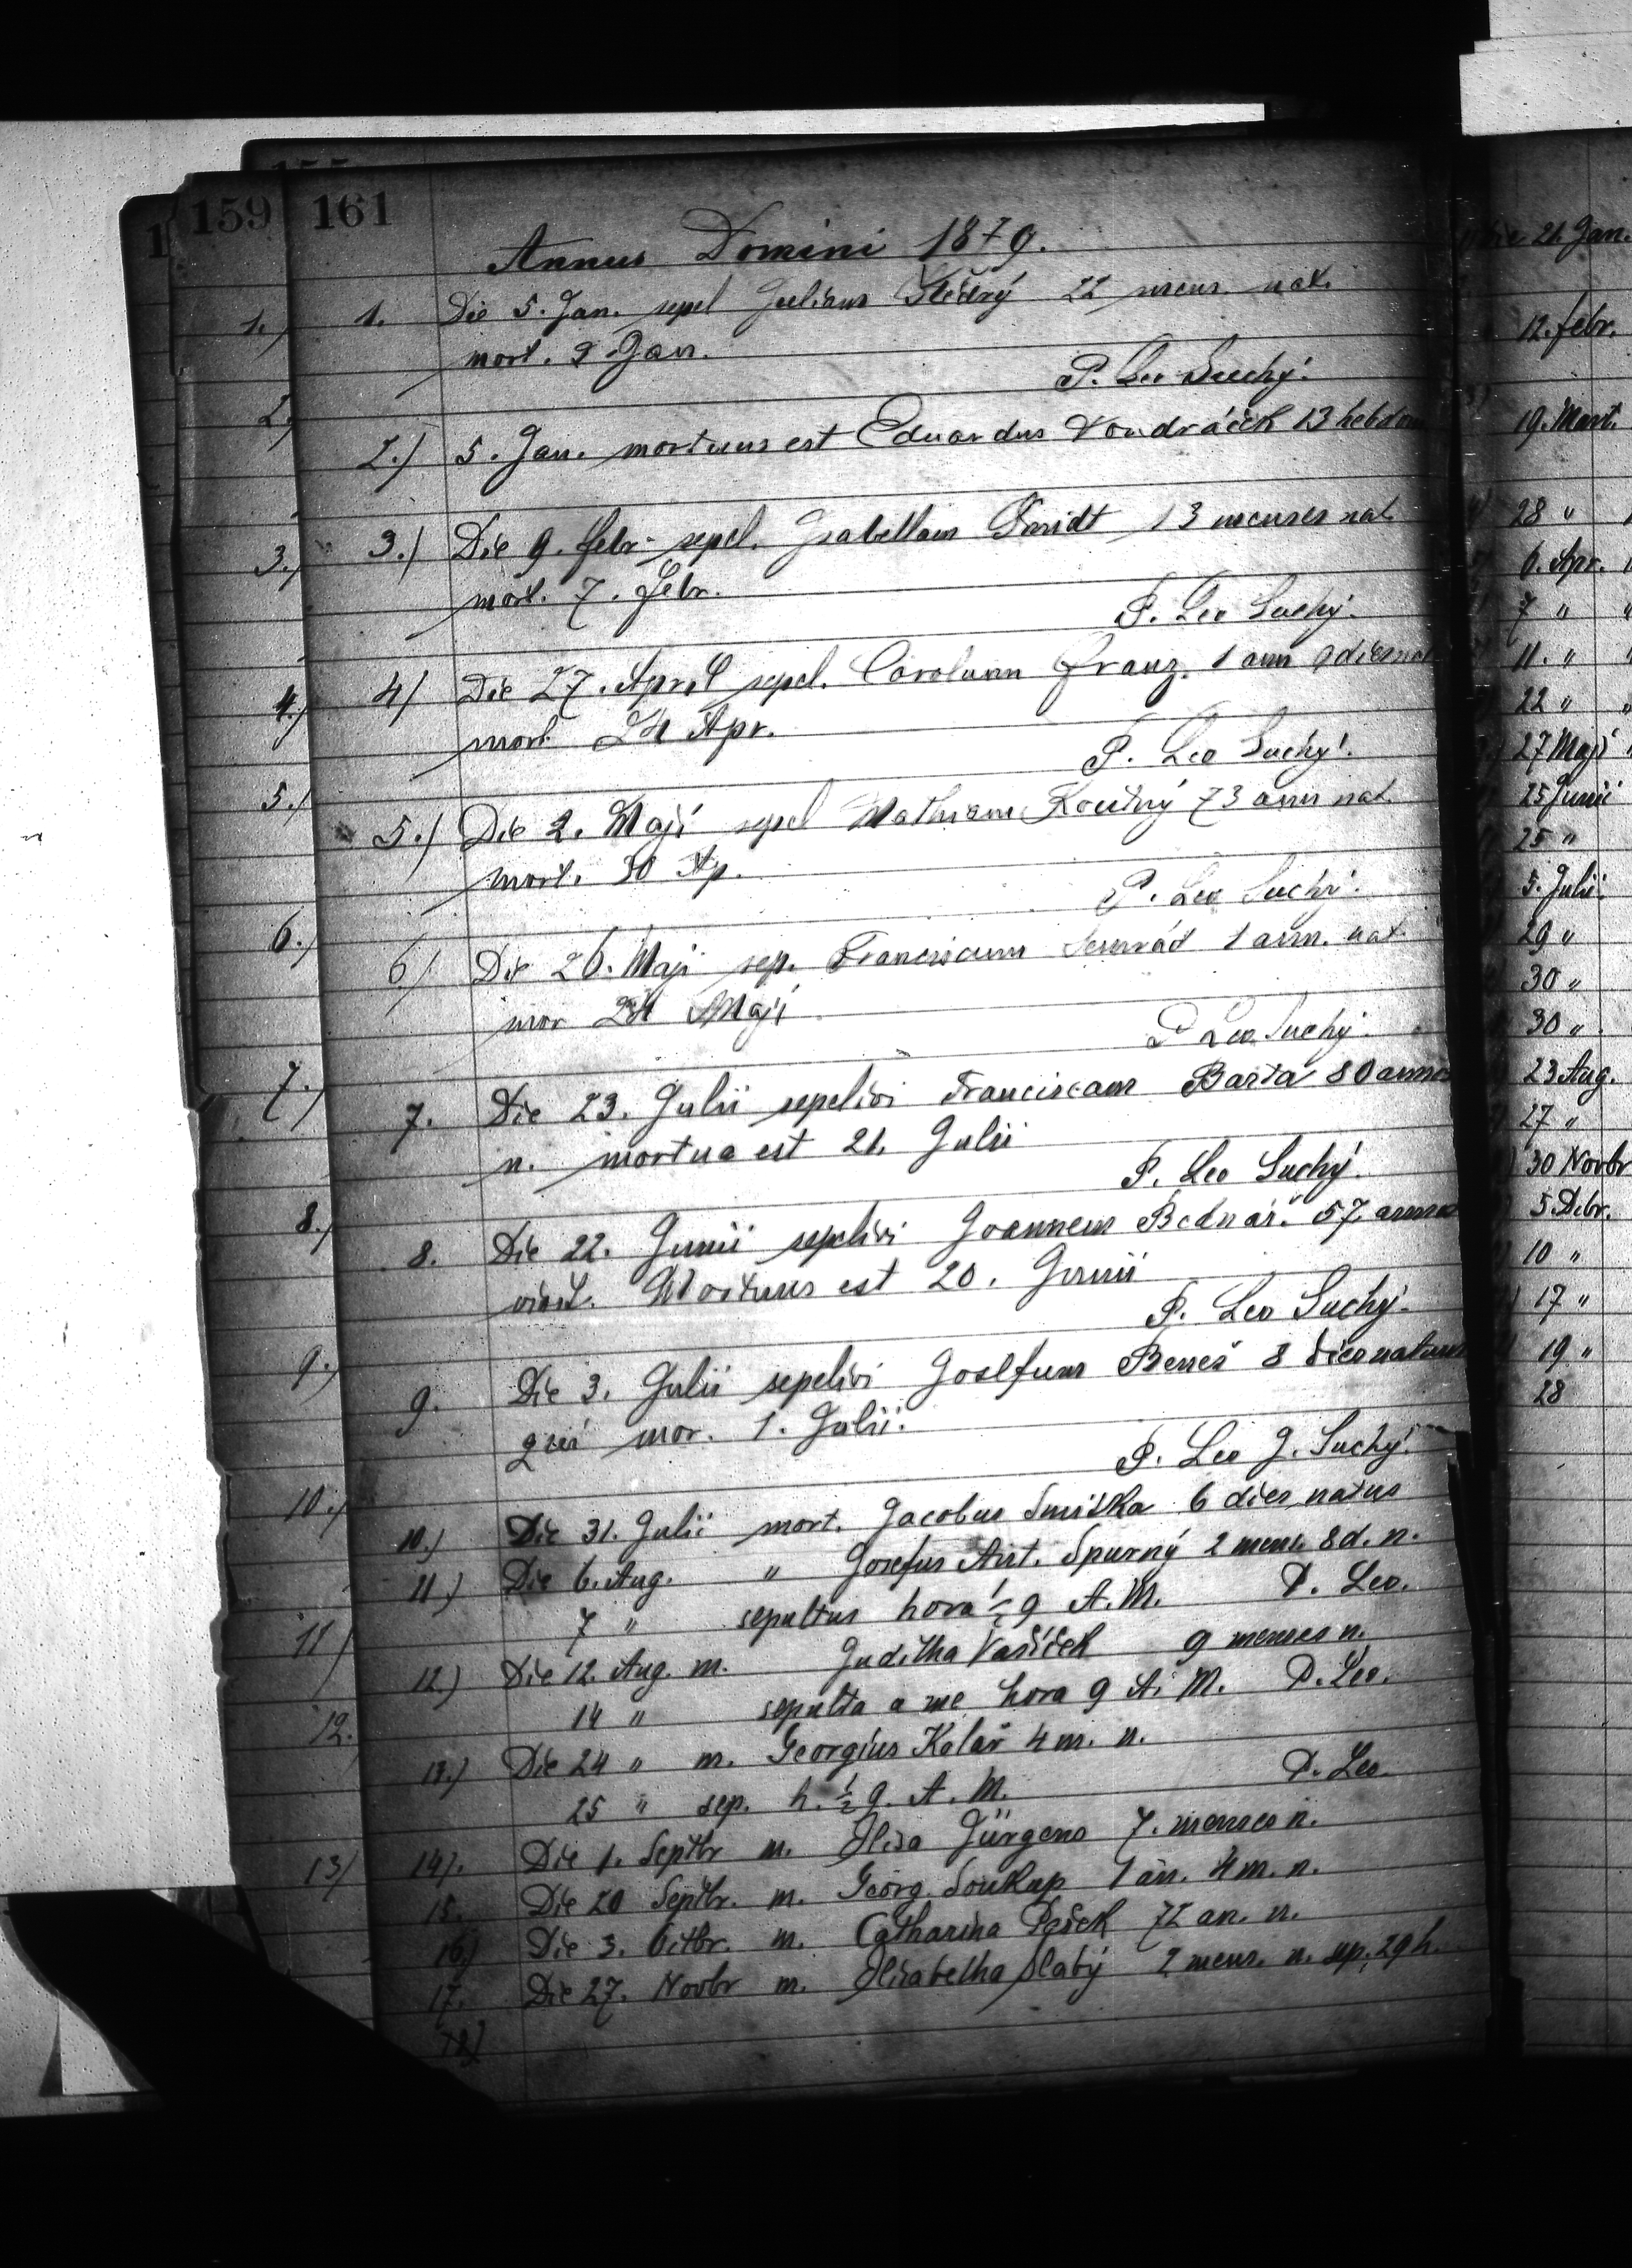 159 161
Annus Domini 1879.
1. Die 5. Jan. sepel Julium 22 mens. nat.
mort. Jan.
P. Leo Suchý.
2.) 5. Jan. mortuus est Eduardus Vondráček 13 hebdom
3.) Die 9. febr. sepel. Isabellam Smidt 13 menses nat.
mort. 7. Febr.
P. Leo Suchý.
4) Die 27. April sepel. Carolum Franz. 1 ann 9 dies nat
mort 24 Apr.
P. Leo Suchý.
5.) Die 2. Maji sepel Mathiam Koutný 73 ann nat.
mort. 30 Ap.
P. Leo Suchý.
6) Die 26. Maji sep. Franciscum Semrád 1 ann. nat
mor 24 Maji
P Leo Suchý.
7. Die 23. Julii sepelivi Franciscam Barta 80 annos
n. mortua est 21. Julii
P. Leo Suchý.
8. Die 22. Junii sepelivi Joannem Bednář 57 annos
Mortuus est 20. Junii
P. Leo Suchý.
9. Die 3. Julii sepelivi Josefum Beneš 8 dies natum
qui mor. 1. Julii.
P. Leo J. Suchý.
10.) Die 31. Julii mort. Jacobus Smiška 6 dies natus
11.) Die 6. Aug. " Josefus Ant. Spurný 2 mens. 8 d. n.
7 " sepultus hora ½ 9 A.M. P. Leo.
12) Die 12. Aug. m. Juditha Vašíček 9 menses n.
14 " sepulta a me hora 9 A. M. P. Leo.
13.) Die 24 " m. Georgius Kolář 4 m. n.
25 " sep. h. ½ 9. A. M. P. Leo.
14). Die 1. Septbr m. Elisa Jürgens 7. menses n.
15. Die 20 Septbr. m. Georg. Soukup 1 an. 4 m. n.
16.) Die 3. Octbr. m. Catharina Pešek 72 an. n.
17. Die 27. Novbr m. Elisabetha Slabý 2 mens. n. sep. 29 h.
18)
1.)
2.)
3.)
4.)
5.)
6.)
7.)
8.)
9.)
10.)
11)
12.
13)
Die 21. Jan.
12. febr.
19. Mart.
28 "
6. Apr.
7 "
11. "
22 "
27 Maji
25 Junii
25 "
5. Julii.
29 "
30 "
30 "
23 Aug.
27 "
30 Novbr
5. Dcbr.
10 "
17 "
19 "
28